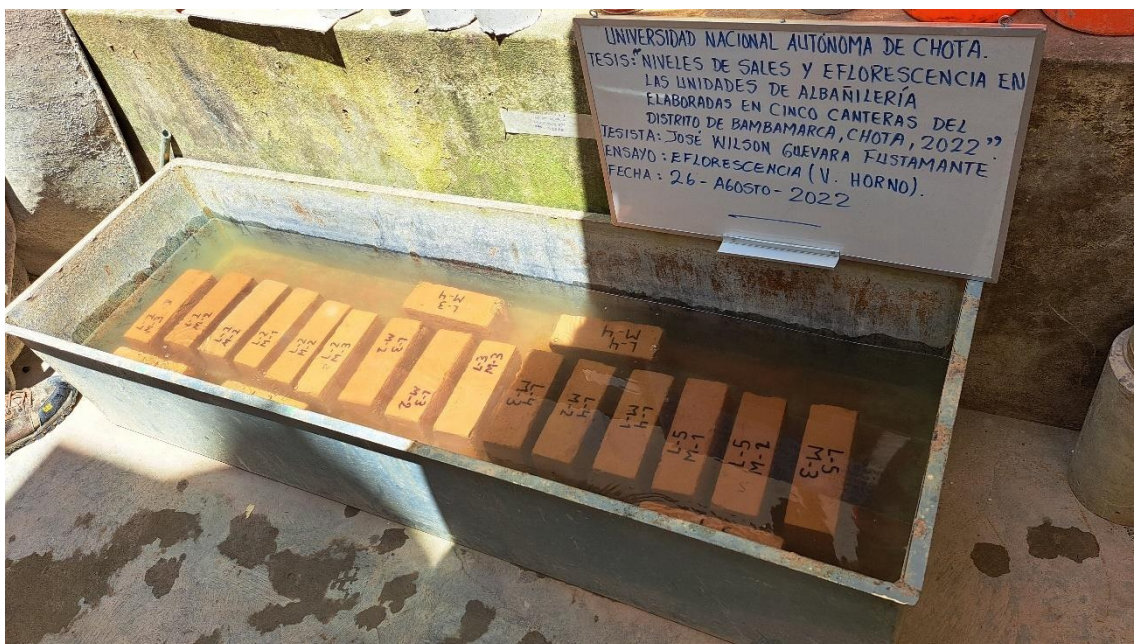 UNIVERSIDAD NACIONAL AUTÓNOMA DE CHOTA.
TESIS: "NIVELES DE SALES Y EFLORESCENCIA EN
LAS UNIDADES DE ALBAÑILERÍA
ELABORADAS EN CINCO CANTERAS DEL
DISTRITO DE BAMBAMARCA, CHOTA, 2022".
TESISTA: JOSÉ WILSON GUEVARA FUSTAMANTE
ENSAYO: EFLORESCENCIA (V. HORNO).
FECHA: 26-AGOSTO-2022
L-2
M-1
L-2
M-2
L-2
M-3
L-3
M-2
L-3
M-4
L-3
M-3
L-4
M-4
L-4
M-3
L-4
M-2
L-4
M-1
L-5
M-1
L-5
M-2
L-5
M-3